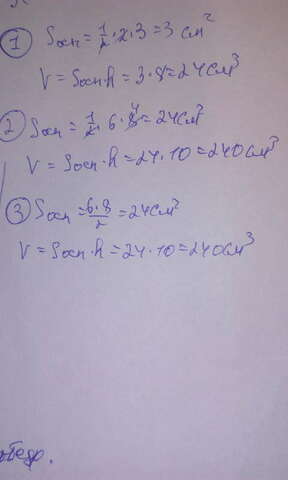 ① Sосн = 1/2 · 2 · 3 = 3 см²
V = Sосн · h = 3 · 8 = 24 см³
② Sосн = 1/2 · 6 · 8 4 = 24 см²
V = Sосн · h = 24 · 10 = 240 см³
③ Sосн = 6·8/2 = 24 см²
V = Sосн · h = 24 · 10 = 240 см³